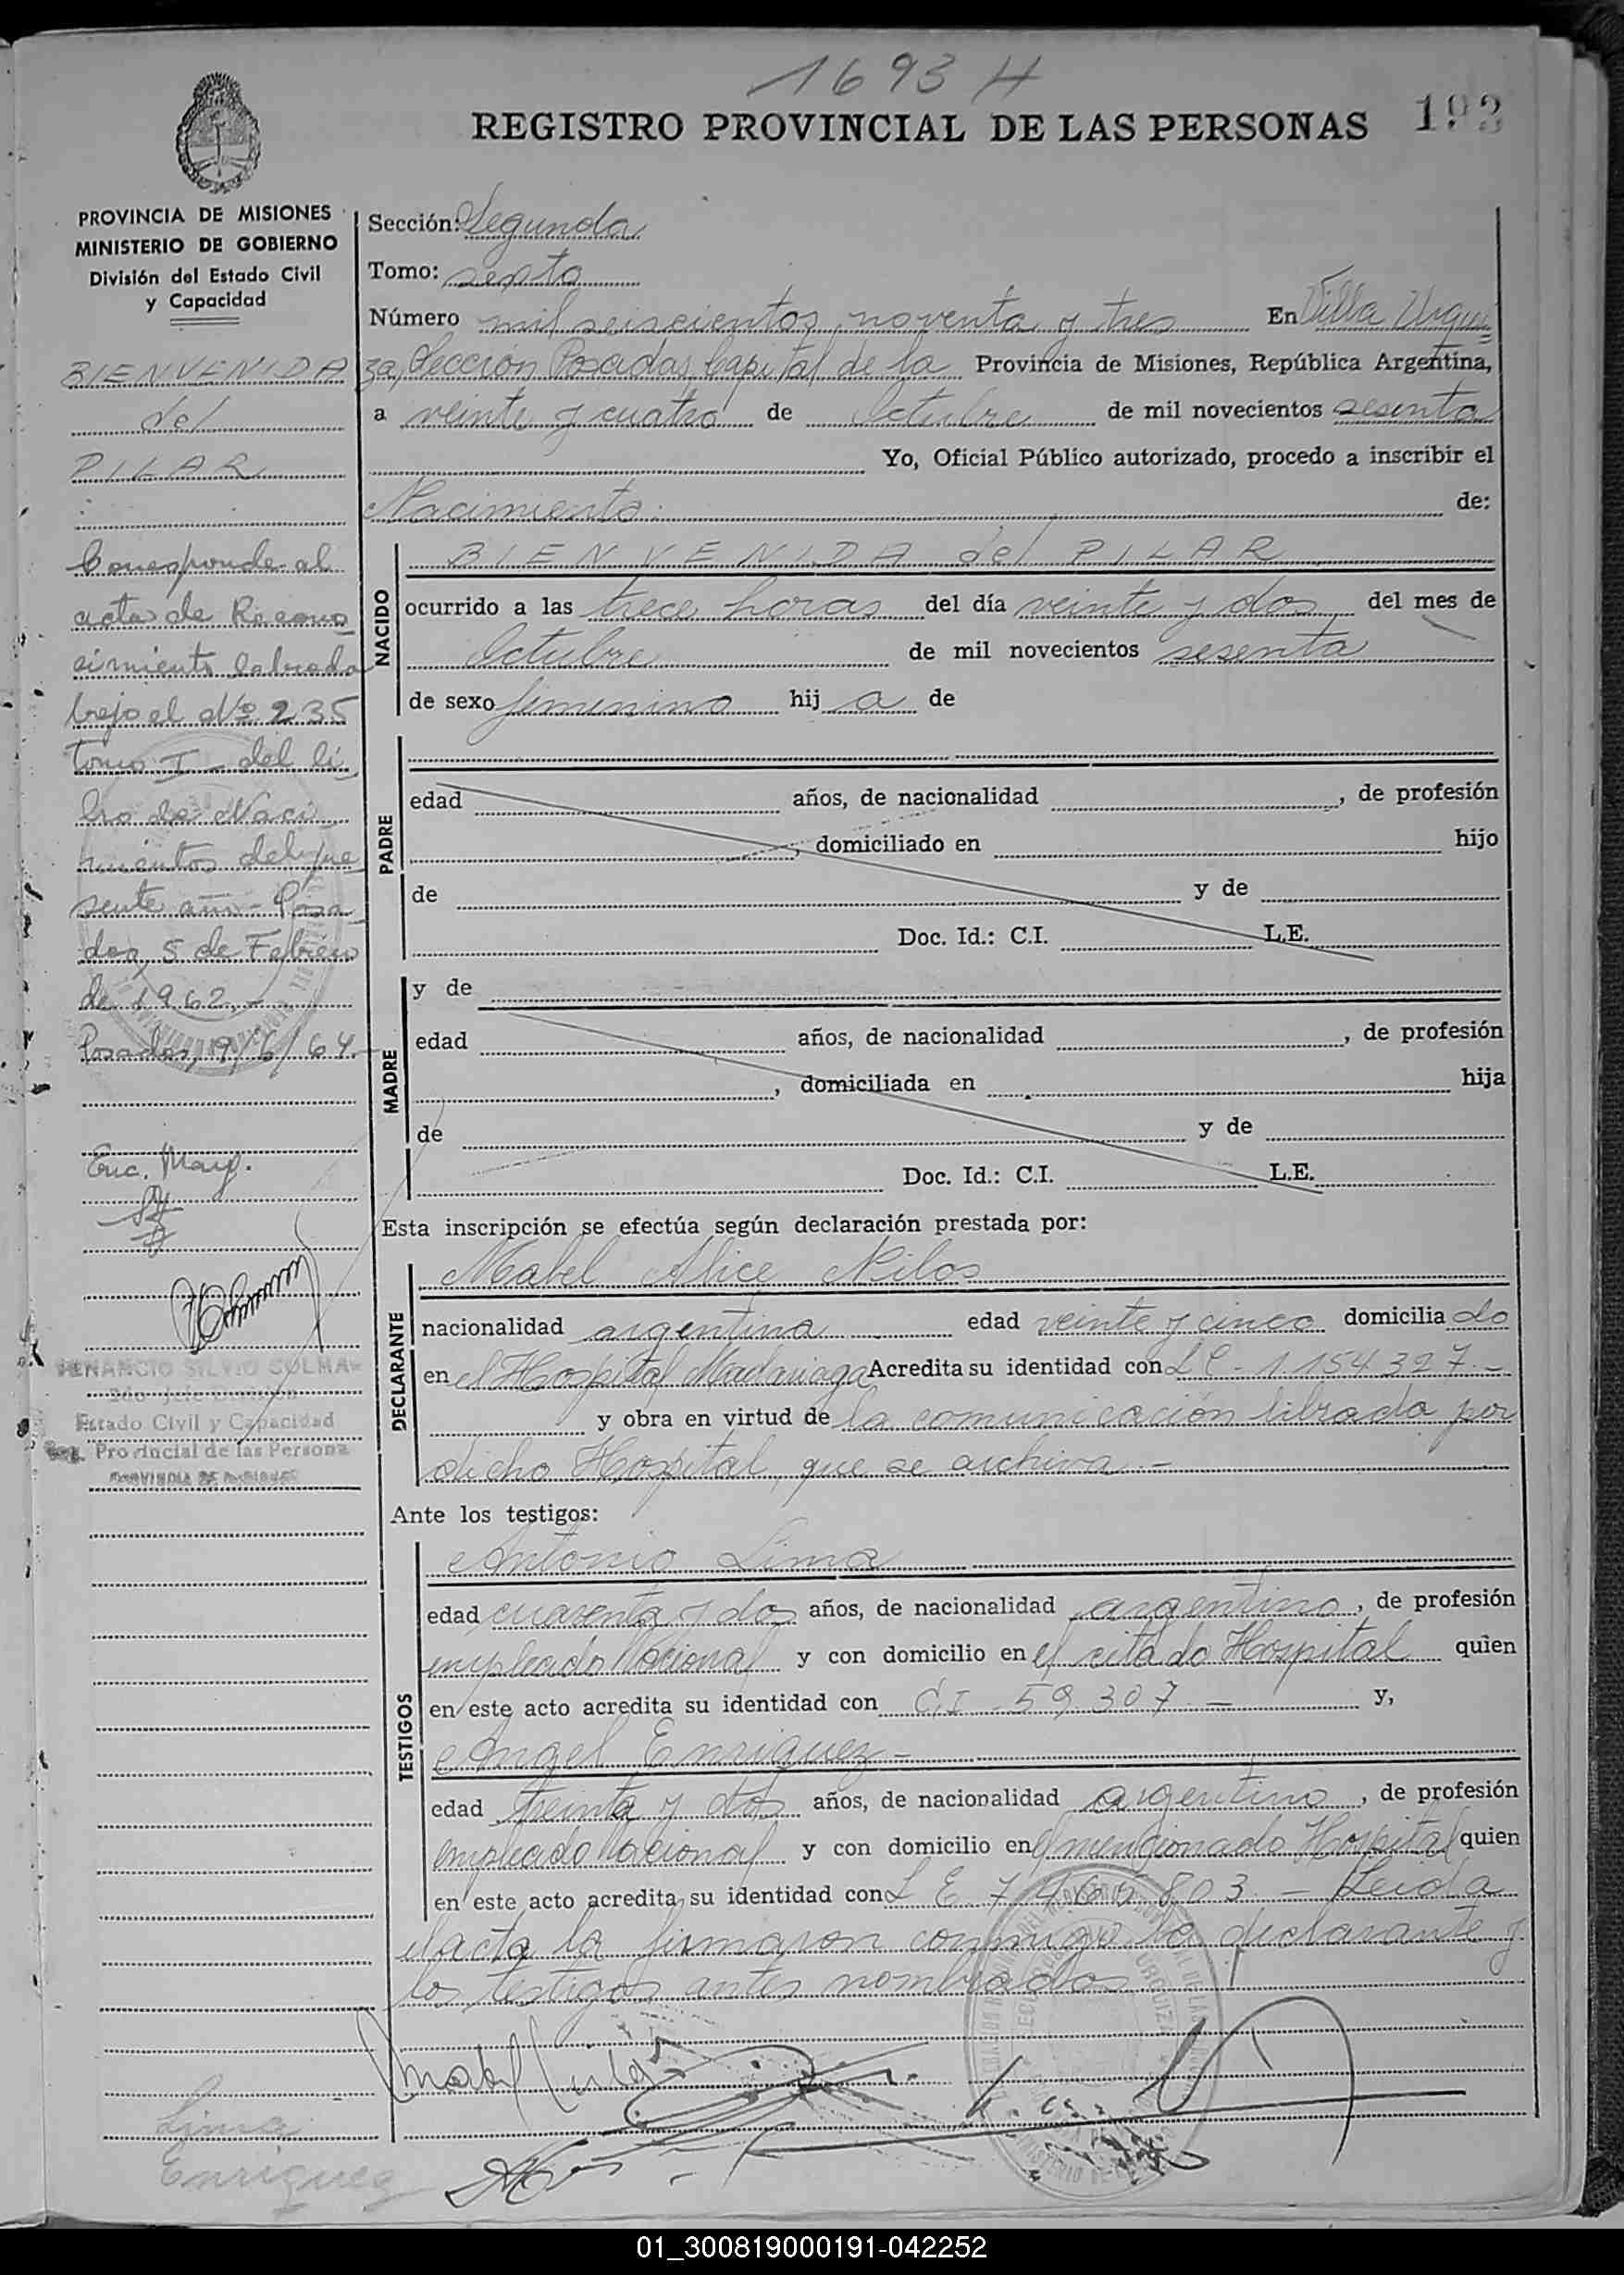 1693 H
REGISTRO PROVINCIAL DE LAS PERSONAS
193
PROVINCIA DE MISIONES
MINISTERIO DE GOBIERNO
División del Estado Civil
y Capacidad
BIENVENIDA
del
PILAR
Corresponde al
acta de Recono
cimiento labrada
bajo el Nº 235
tomo I - del li
bro de Naci
mientos del pre
sente año - Posa
das, 5 de Febrero
de 1962.-
Posadas, 9/6/64
Enc. May.
VENANCIO SILVIO COLMAN
2do Jefe División
Estado Civil y Capacidad
Reg. Provincial de las Persona
PROVINCIA DE MISIONES
Sección: Segunda
Tomo: sexto
Número mil seiscientos noventa y tres En Villa Urqui
za, Sección Posadas, Capital de la Provincia de Misiones, República Argentina,
a veinte y cuatro de Octubre de mil novecientos sesenta
Yo, Oficial Público autorizado, procedo a inscribir el
Nacimiento de:
NACIDO
BIENVENIDA del PILAR
ocurrido a las trece horas del día veinte y dos del mes de
Octubre de mil novecientos sesenta
de sexo femenino hij a de
PADRE
edad años, de nacionalidad , de profesión
, domiciliado en hijo
de y de
Doc. Id.: C.I. L.E.
MADRE
y de
edad años, de nacionalidad , de profesión
, domiciliada en hija
de y de
Doc. Id.: C.I. L.E.
Esta inscripción se efectúa según declaración prestada por:
DECLARANTE
Mabel Alice Nilos
nacionalidad argentina edad veinte y cinco domicilia do
en el Hospital Madariaga Acredita su identidad con L C - 1.154.327 -
y obra en virtud de la comunicación librada por
dicho Hospital, que se archiva -
Ante los testigos:
TESTIGOS
Antonio Lima
edad cuarenta y dos años, de nacionalidad argentino, de profesión
empleado Nacional y con domicilio en el citado Hospital quien
en este acto acredita su identidad con C.I. 59.307 - y,
Angel Enriquez -
edad treinta y dos años, de nacionalidad argentino, de profesión
empleado Nacional y con domicilio en el mencionado Hospital quien
en este acto acredita su identidad con L E 7 803 - Leida
el acta la firmaron conmigo la declarante y
los testigos antes nombrados
Lima
Enriquez
01_300819000191-042252